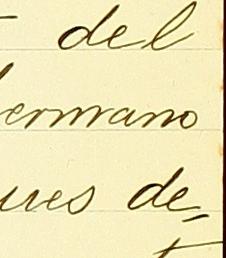 del
ermano
ues de